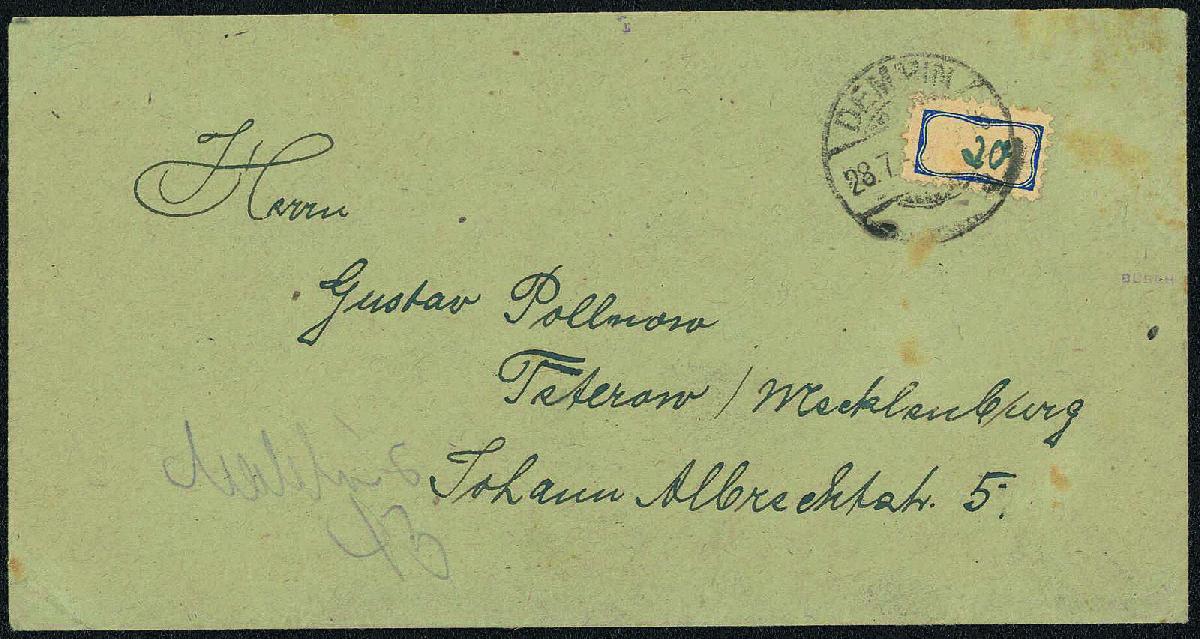 DEMMIN
28.7.
20
Herrn
Gustav Pollnow
Teterow / Mecklenburg
Johann Albrechtstr. 5.
BUSCH